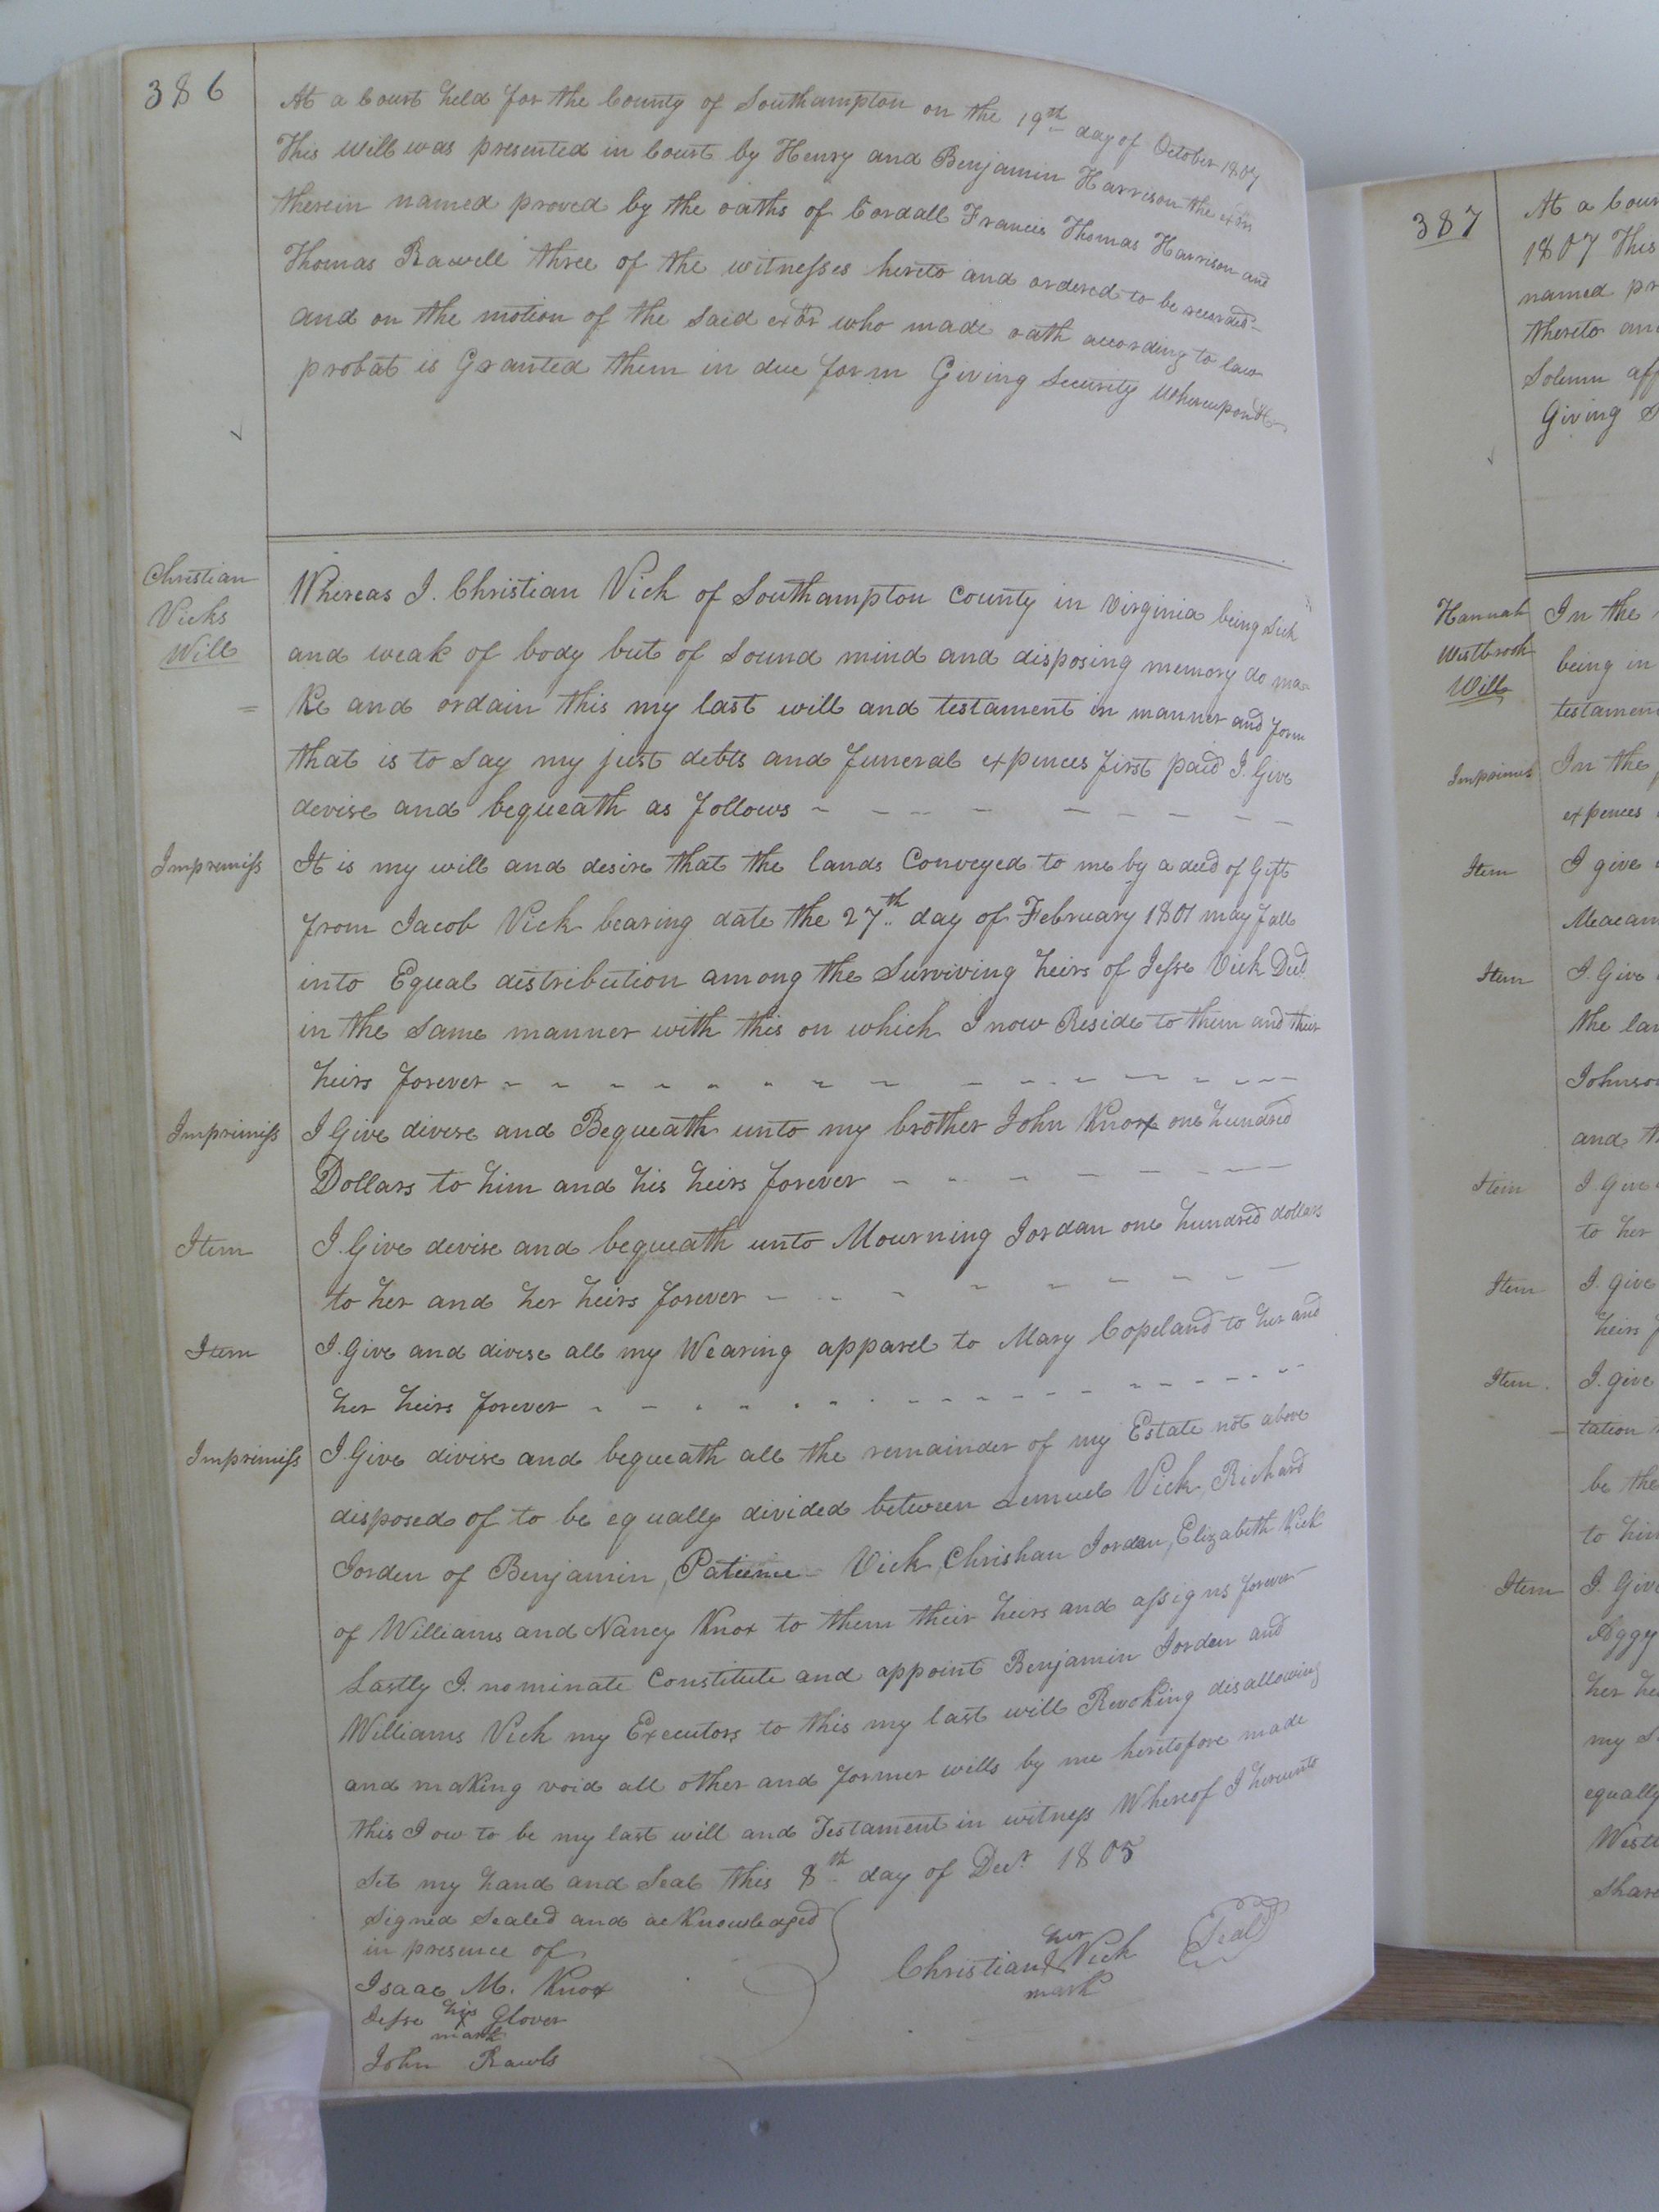 386
At a Court held for the County of Southampton on the 19th day of October 1807
This will was presented in Court by Henry and Benjamin Harrison the exõrs
therein named proved by the oaths of Cordall Francis Thomas Harrison and
Thomas Rawell three of the witnesses hereto and ordered to be recorded
and on the motion of the said exõrs who made oath according to law
probat is Granted them in due form Giving Security Whereupon &c
Christian
Vicks
Will
Whereas I. Christian Vick of Southampton County in Virginia being Sick
and weak of body but of Sound mind and disposing memory do ma-
ke and ordain this my last will and testament in manner and form
that is to say my just debts and funeral expences first paid I. Give
devise and bequeath as follows
Impremiss It is my will and desire that the lands Conveyed to me by a deed of Gift
from Jacob Vick bearing date the 27th day of February 1801 may fall
into Equal distribution among the Surviving heirs of Jesse Vick Decd
in the Same manner with this on which I now Reside to them and their
heirs forever
Imprimiss I Give divise and Bequeath unto my brother John Knox one hundred
Dollars to him and his heirs forever
Item I. Give devise and bequeath unto Mourning Jordan one hundred dollars
to her and her heirs forever
Item I. Give and divise all my Wearing apparel to Mary Copeland to her and
her heirs forever
Imprimiss I. Give divise and bequeath all the remainder of my Estate not above
disposed of to be equally divided between Lemuel Vick, Richard
Jorden of Benjamin, Patience Vick, Christian Jordan, Elizabeth Vick
of Williams and Nancy Knox to them their heirs and assigns forever
Lastly I. nominate Constitute and appoint Benjamin Jorden and
Williams Vick my Executors to this my last will Revoking disallowing
and making void all other and former wills by me heretofore made
this I ow to be my last will and Testament in witness Whereof I hereunto
Set my hand and Seal this 8th day of Decr 1805
Signed Sealed and acknowledged
in presence of
Isaac M. Knox
Jesse his X mark Glover
John Rawls
Christian her X mark Vick Seal
387
At a Cour
1807 This
named pr
thereto an
Solemn aff
Giving S
Hannah
Westbrook
Will
In the
being in
testamen
Imprimis In the
expences
Item I give
Meacam
Item I. Give
the lan
Johnson
and th
Item I. Give
to her
Item I. give
heirs f
Item. I. give
tation
be the
to him
Item I. Give
Aggy
her he
my S
equally
West
Share